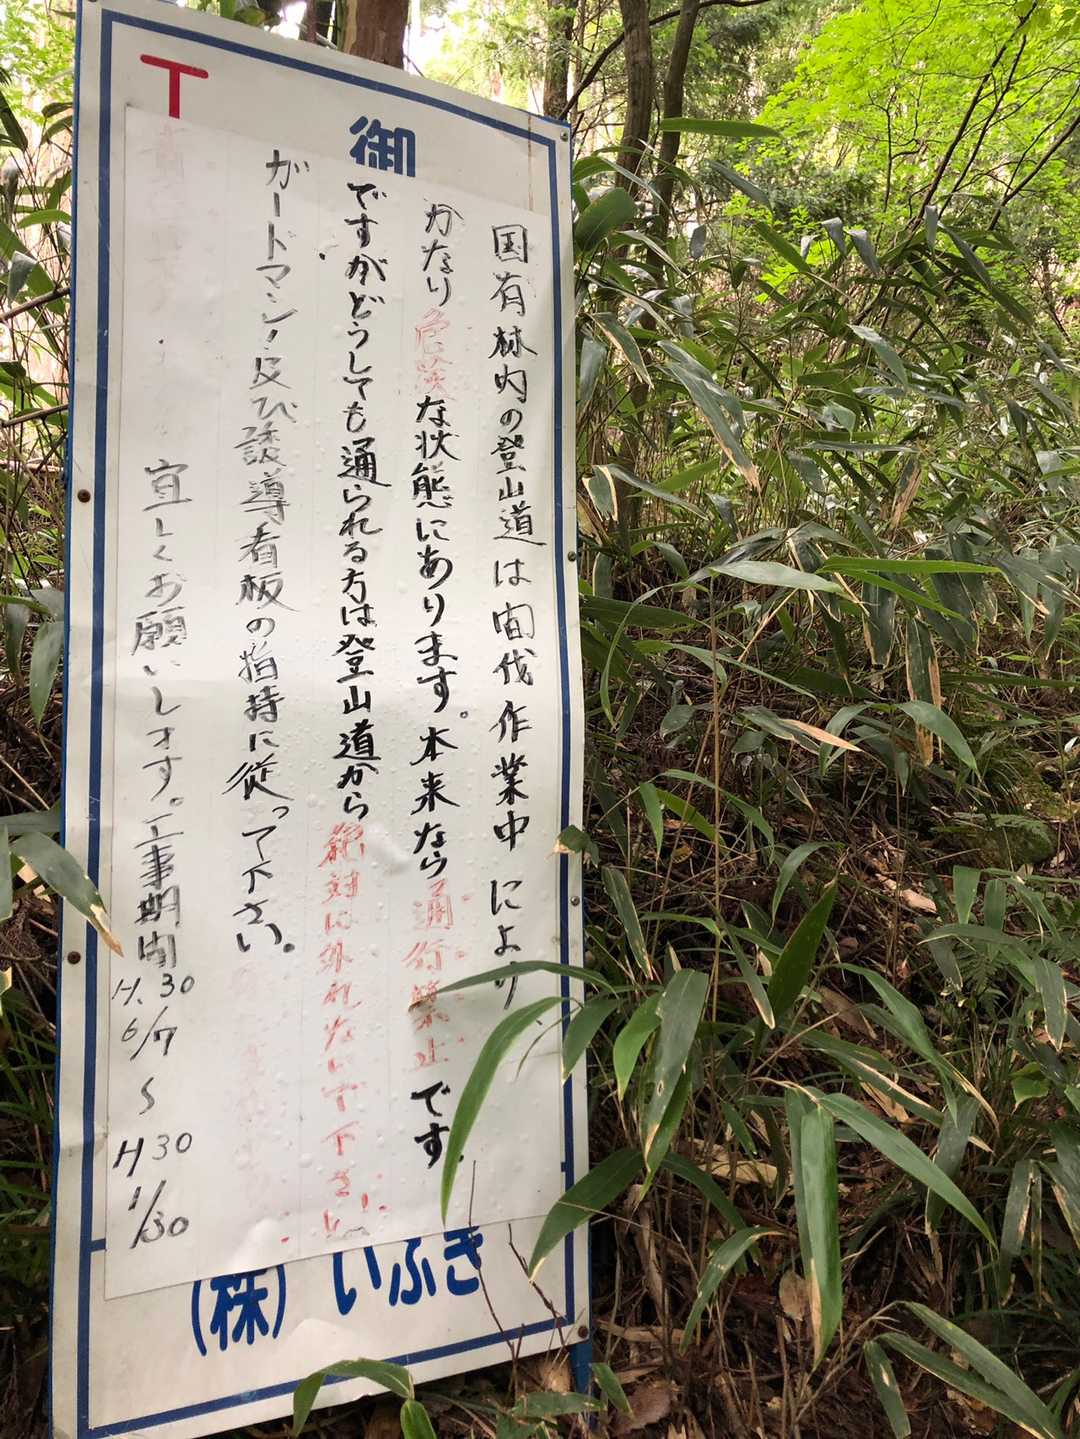 御
国有林内の登山道は間伐作業中により、
かなり危険な状態にあります。本来なら通行禁止です。
ですがどうしても通られる方は登山道から絶対に外れないで下さい
ガードマン、及び誘導看板の指持に従って下さい。
宜しくお願いします。工事期間
H.30
6/7
〜
H30
1/30
(株)いぶき